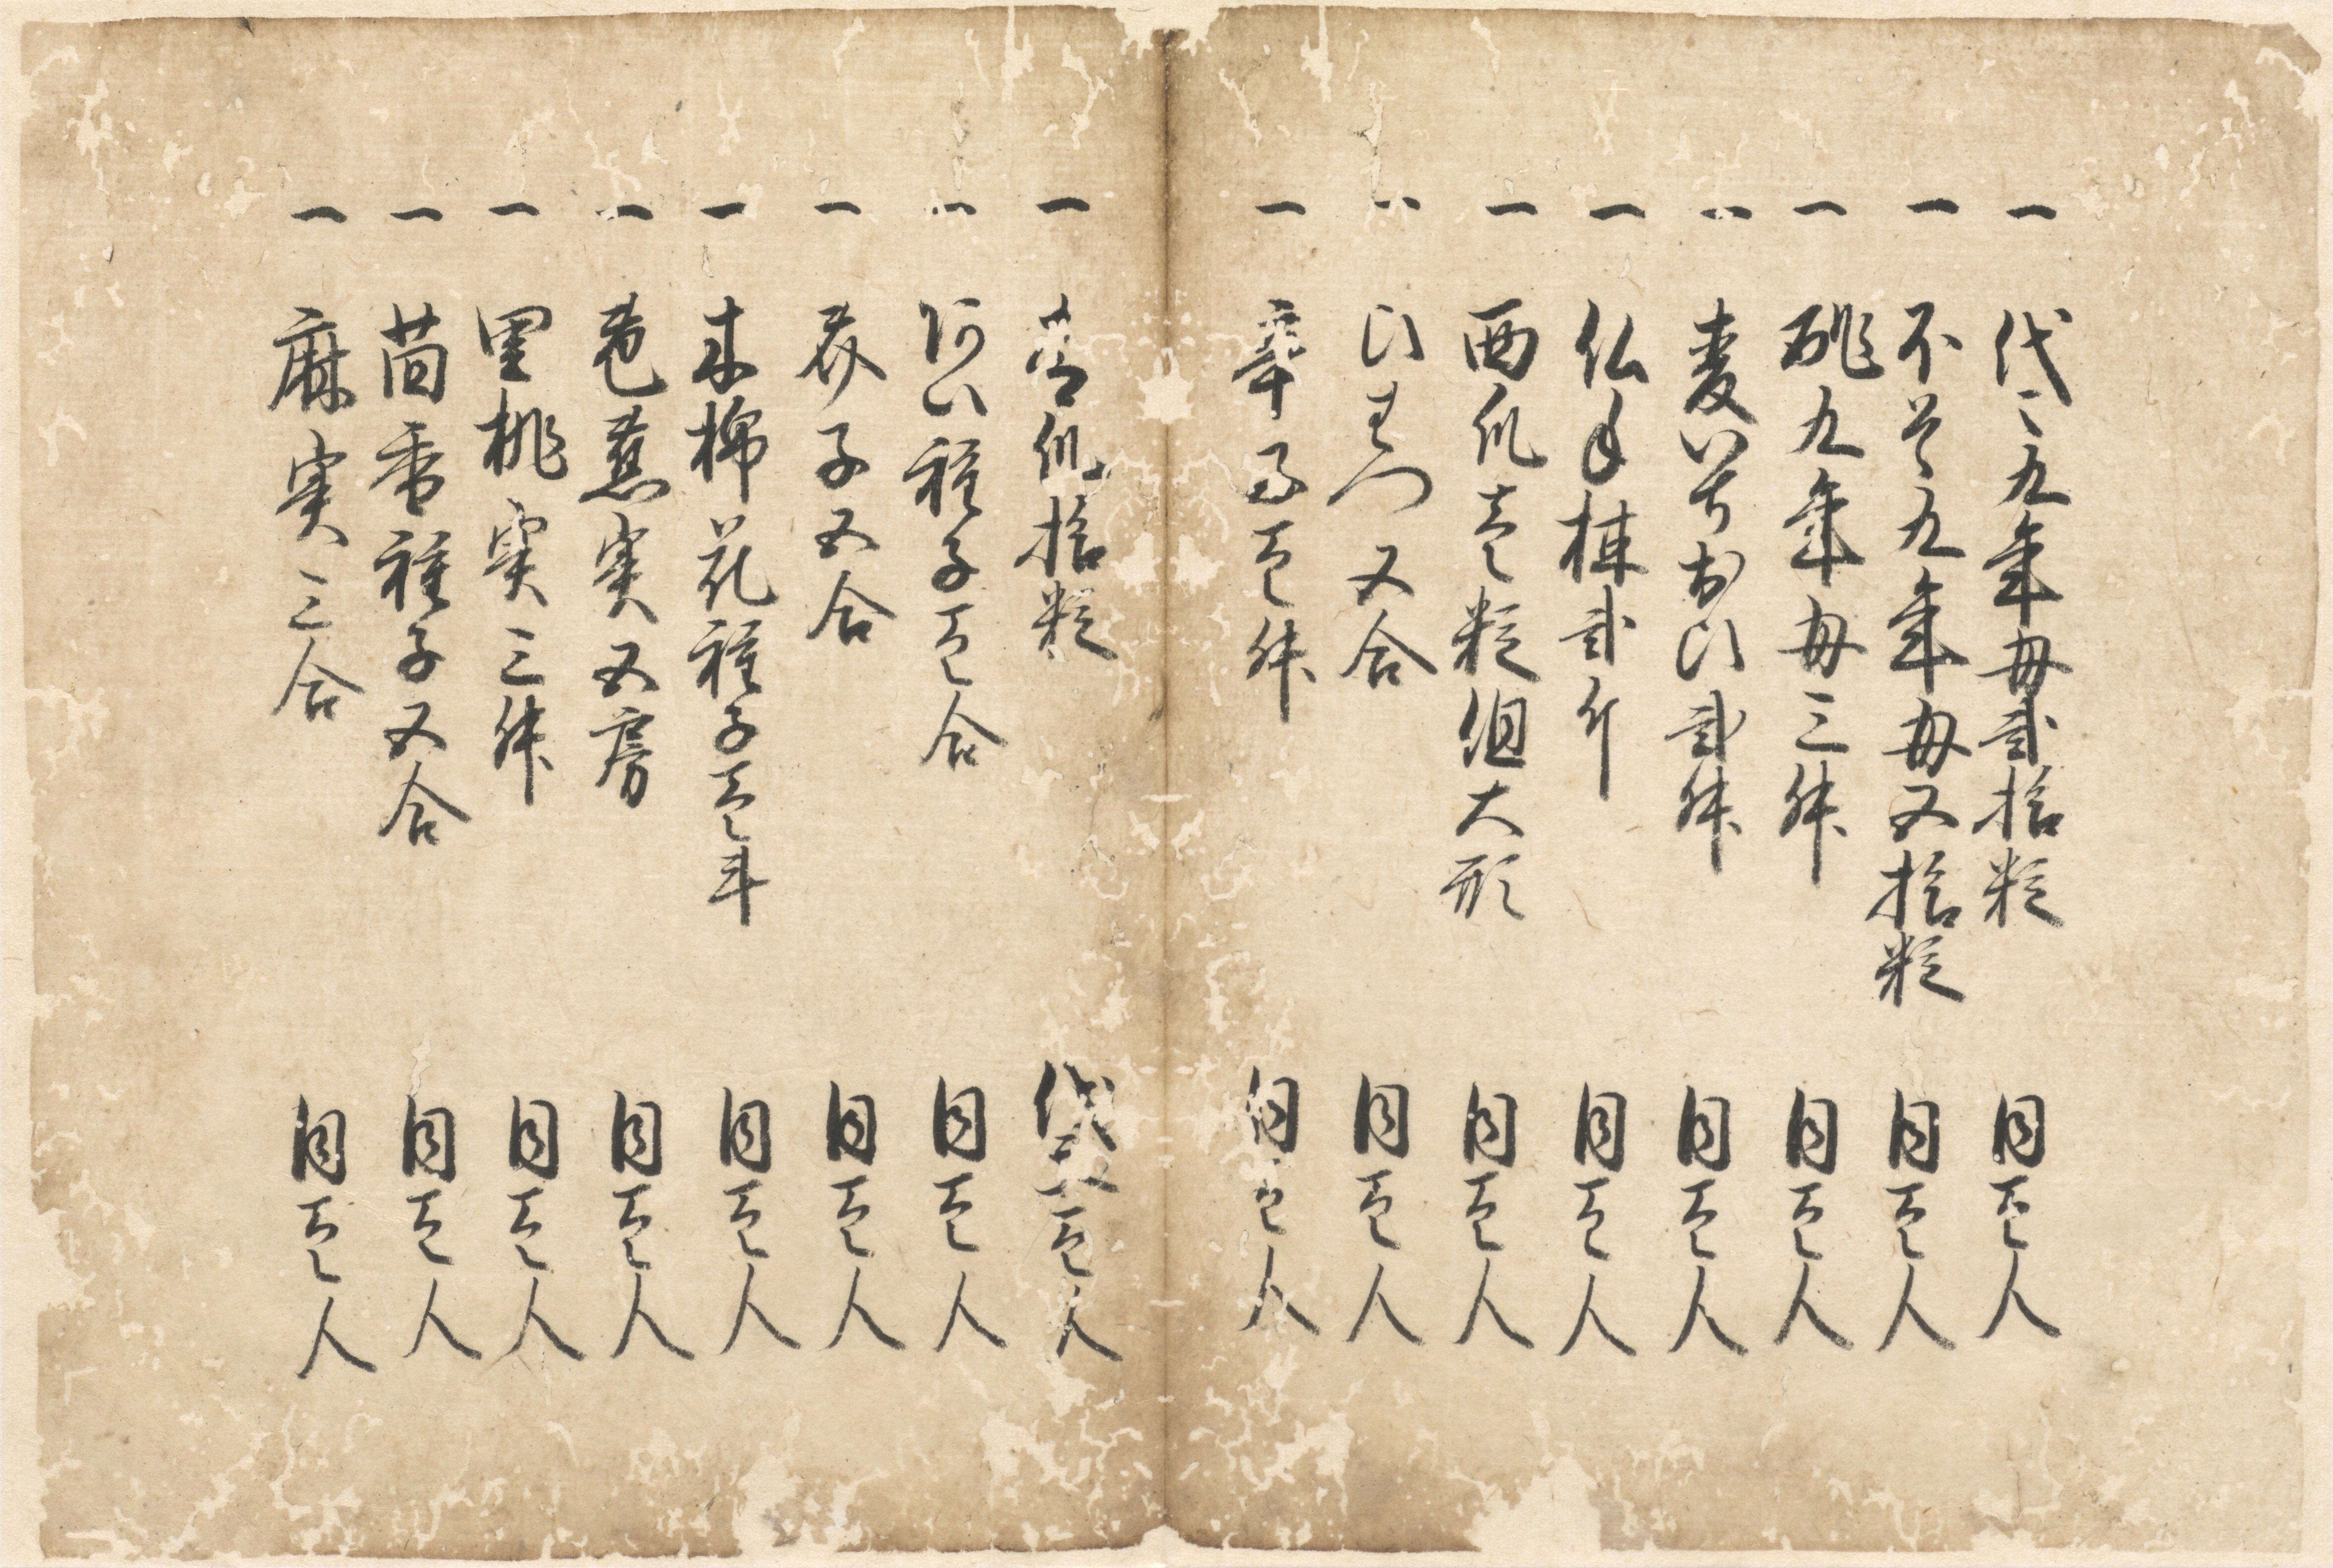 一 代々九年母弐拾粒 同壱人
一 九年母五拾粒 同壱人
一 九年母三升 同壱人
一 弐升 同壱人
一 仏手楝弐斤 同壱人
一 西瓜壱粒但大形 同壱人
一 ひはつ五合 同壱人
一 子壱升 同壱人
一 苦瓜拾粒 壱人
一 阿い種子壱合 同壱人
一 芥子五合 同壱人
一 木棉花種子壱斗 同壱人
一 芭蕉実五房 同壱人
一 里桃実三升 同壱人
一 茴香種子五合 同壱人
一 麻実三合 同壱人